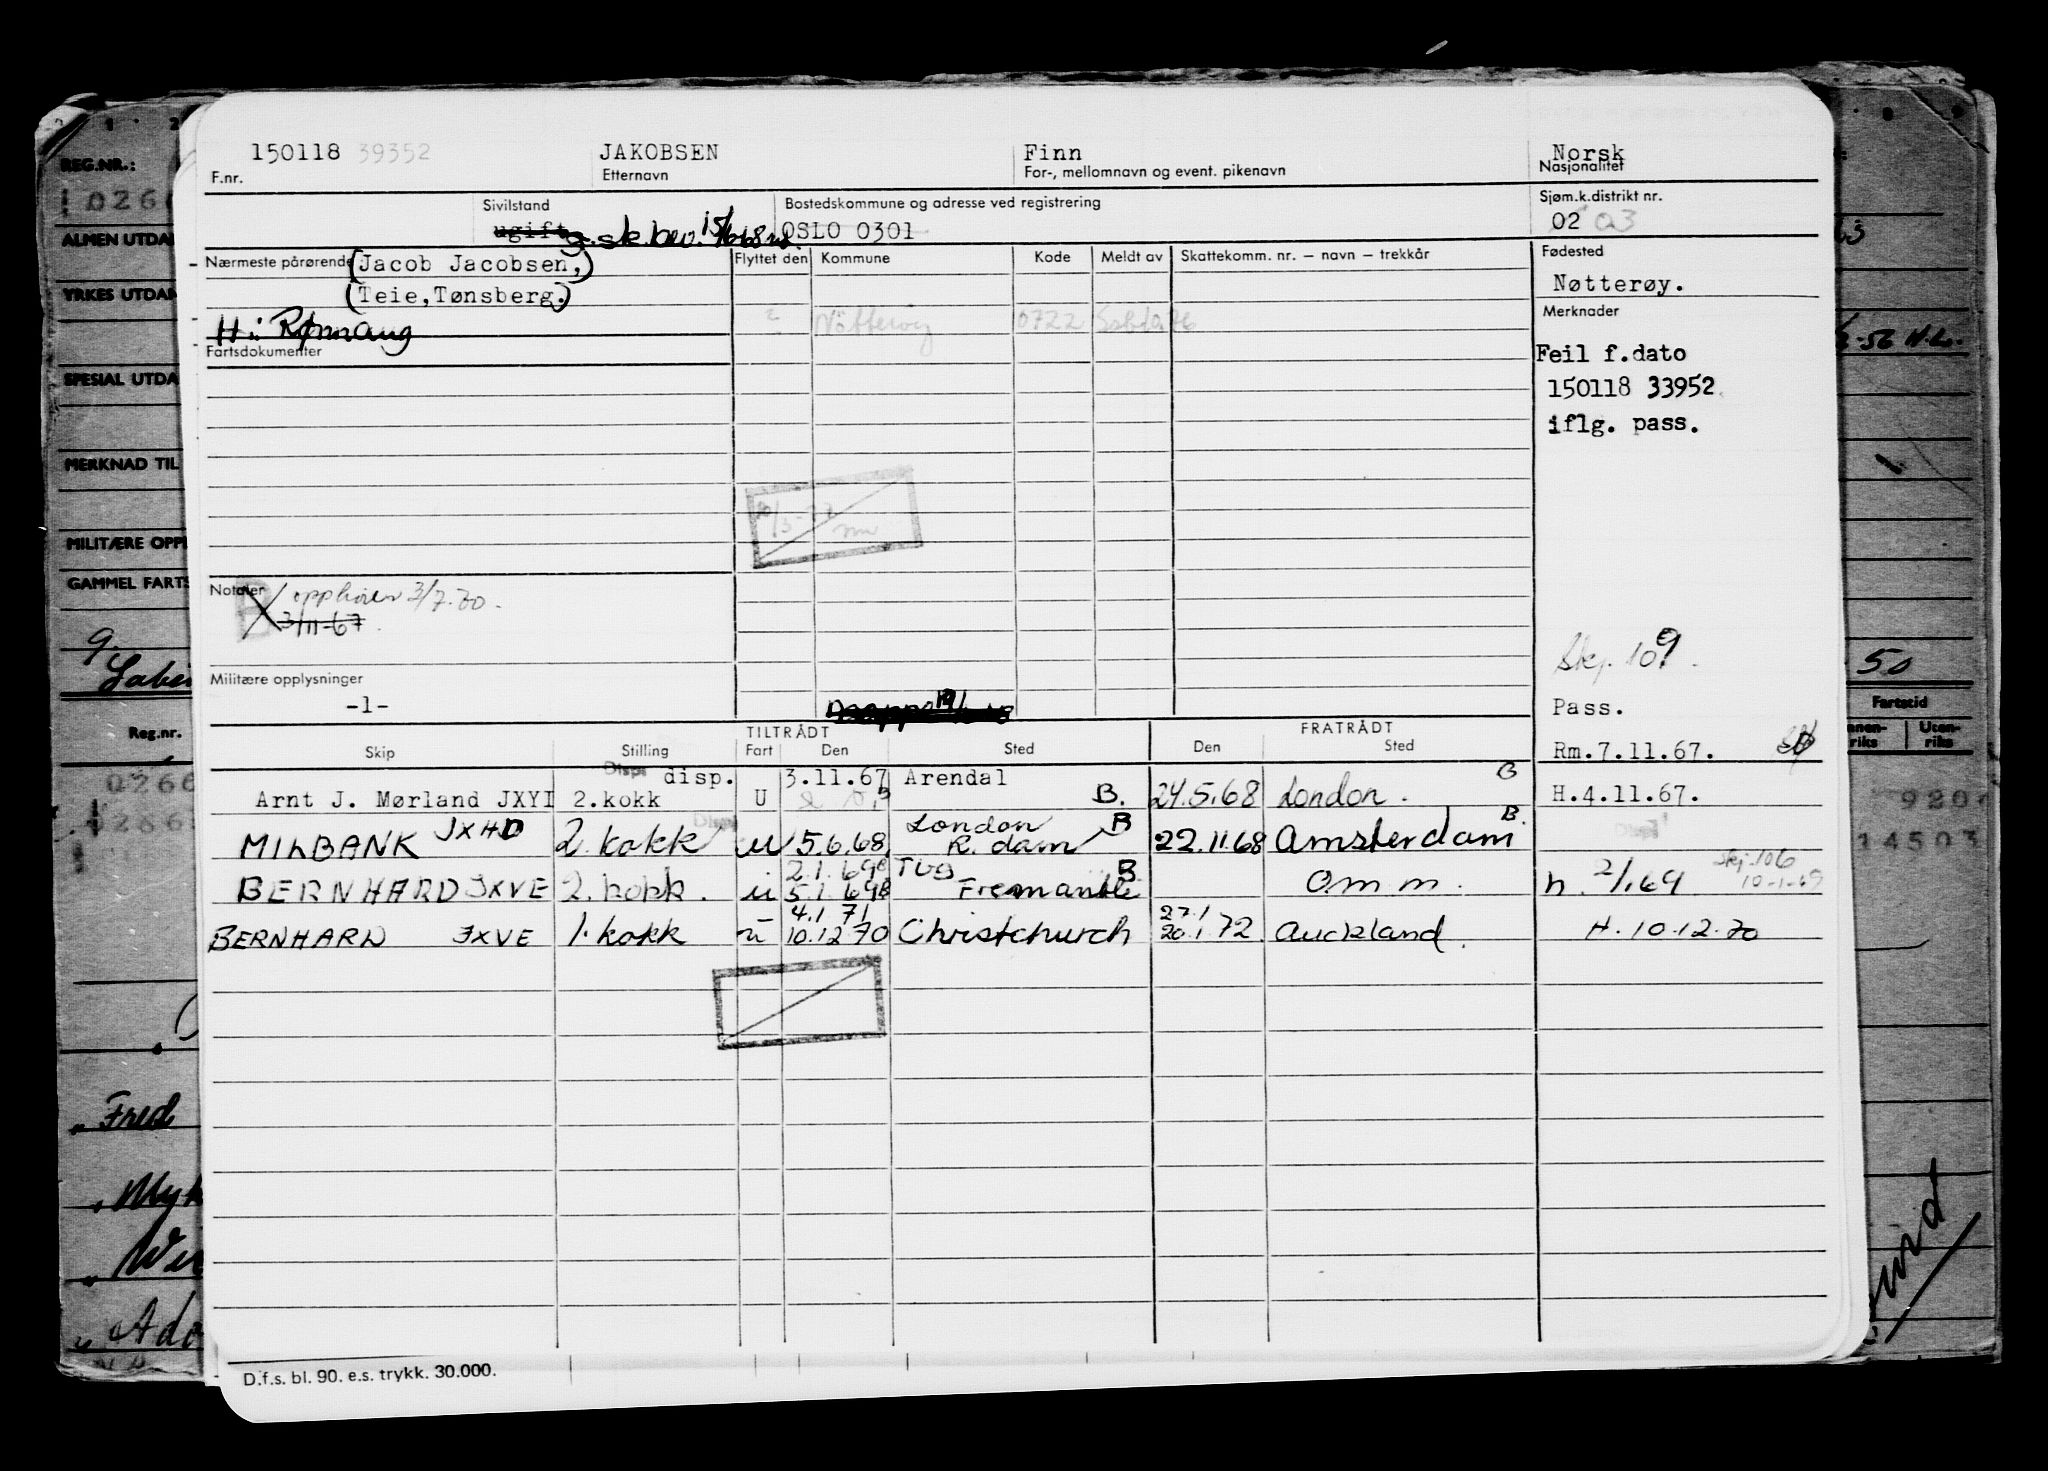 150118 39352 JAKOBSEN Finn Norsk
F.nr. Etternavn For-, mellomnavn og event. pikenavn Nasjonalitet
Sivilstand Bostedskommune og adresse ved registrering Sjøm.k.distrikt nr.
ugift g. sk.bev. OSLO 0301 02 03
Nærmeste pårørende (Jacob Jacobsen,) Flyttet den Kommune Kode Meldt av Skattekomm. nr. – navn – trekkår Fødested
(Teie,Tønsberg.) Nøtterøy.
Merknader
H: Nötteröy 0722
Fartsdokumenter
Feil f.dato
150118 33952
iflg. pass.
Notater opphører 3/7.70.
3/11-67
Skj. 109
Militære opplysninger
-1-
Pass.
TILTRÅDT FRATRÅDT
Skip Stilling Fart Den Sted Den Sted
Rm.7.11.67.
disp. 3.11.67 Arendal B
Arnt J. Mørland JXYI 2.kokk U B. 24.5.68 London. H.4.11.67.
London B B.
MILBANK JXHD 2. kokk u 5.6.68 R.dam 22.11.68 Amsterdam
2.1.69 TUG B skj. 106
BERNHARD JXVE 2. kokk. u 5.1.69 Fremantle Omm. h. 2/1.69 10-1-69
4.1.71 27.1
BERNHARD JXVE 1. kokk u 10.12.70 Christchurch 20.1.72 Auckland. H. 10.12.70
D.f.s. bl. 90. e.s. trykk. 30.000.
REG.NR.:
ALMEN UTDA
YRKES UTDAN
SPESIAL UTDA
MERKNAD TIL
MILITÆRE OPP
GAMMEL FARTS
g.
Reg.nr.
0266
Fred
50
Fartstid
Uten-
riks riks
9201
14503